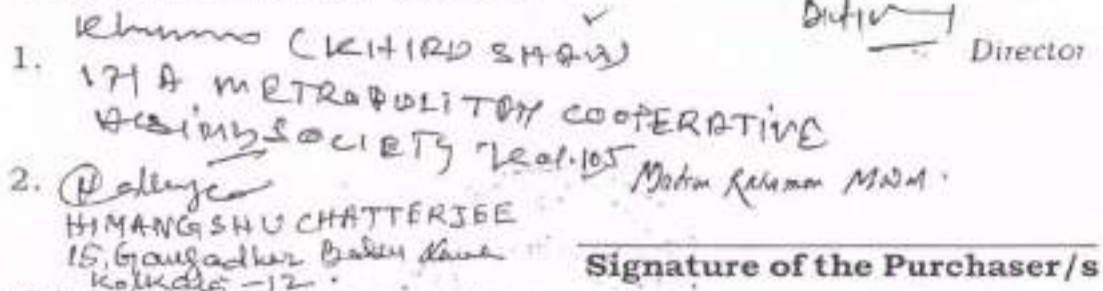 Director
1. (KHIRD SHAW)
171 A METROPOLITON COOPERATIVE
HOSING SOCIETY Kol.105
2. HIMANGSHU CHATTERJEE
15, Gangadhar Babu Lane
Kolkata-12.
Motin Rahaman Mndl.
Signature of the Purchaser/s